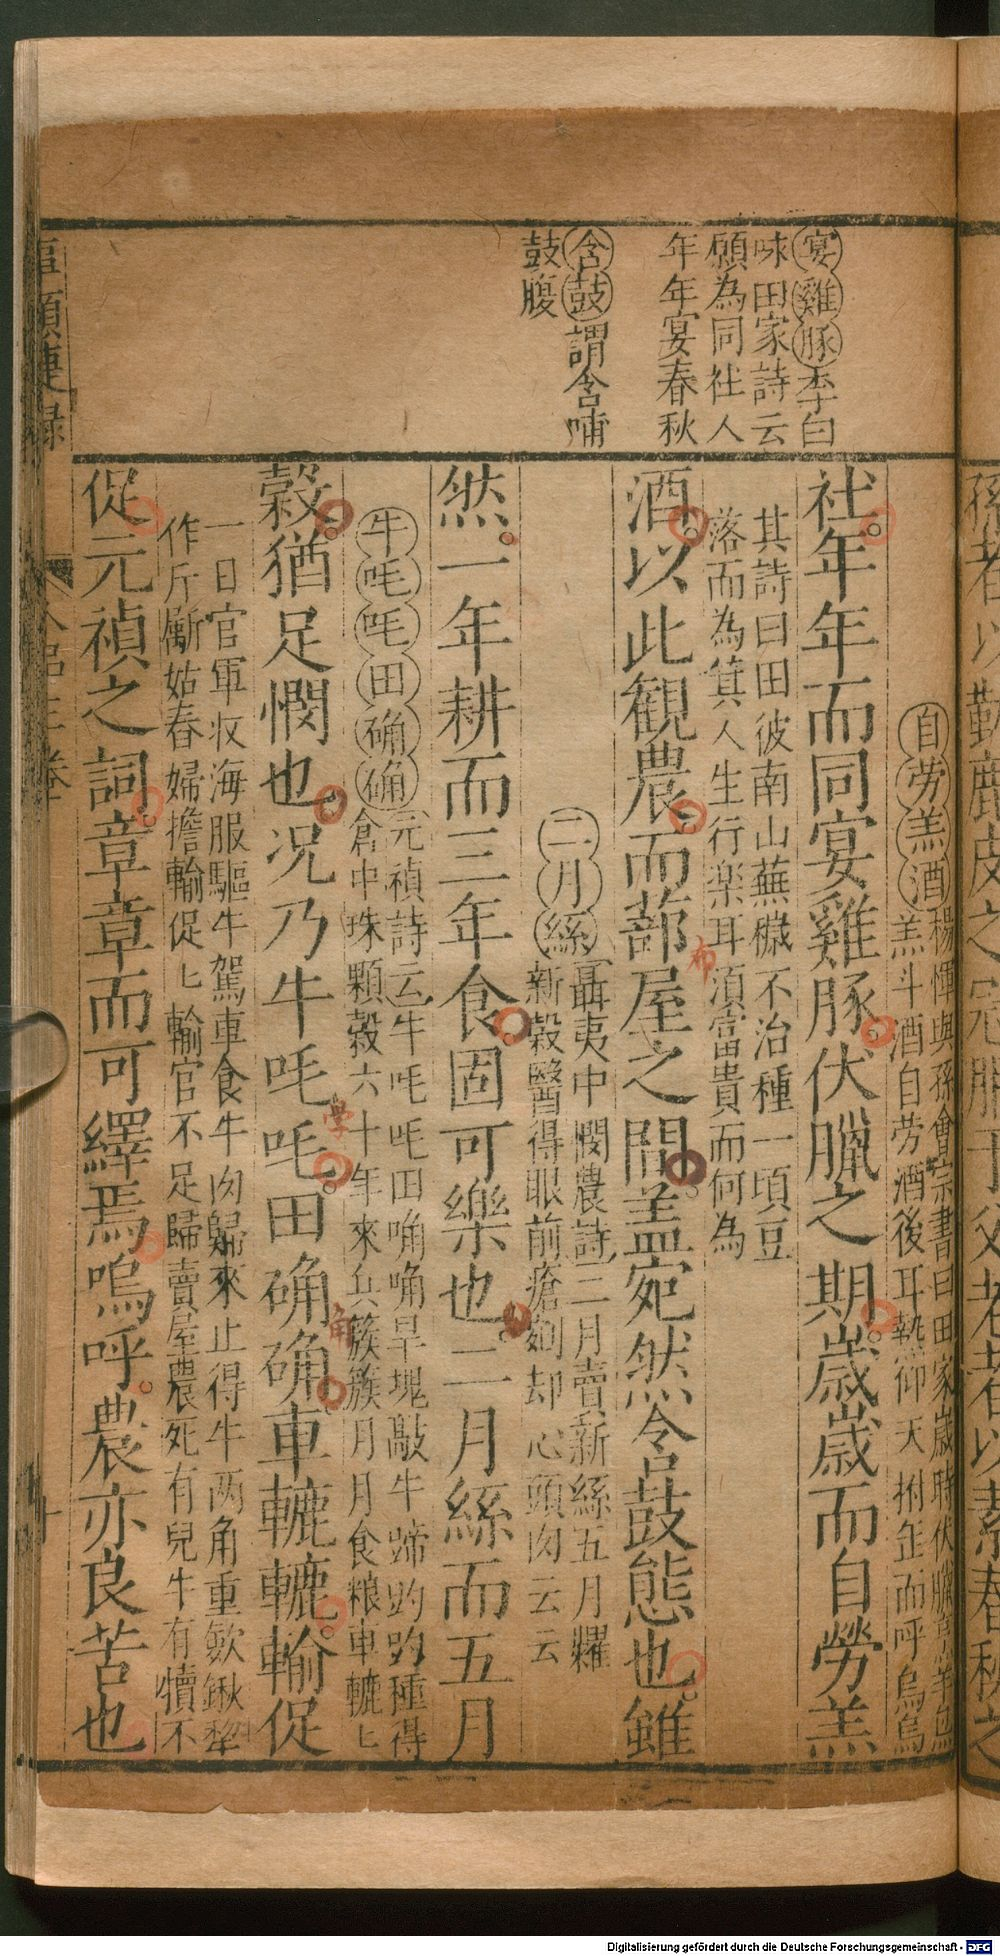 宴雞豚李白
味田家詩云
願為同社人
年年宴春秋
含鼓謂含哺
鼓腹
自劳羔酒楊惲與孫會宗書曰田家歲時伏臘烹羊炰
羔斗酒自劳酒後耳熱仰天拊缶而呼烏烏
社年年而同宴雞豚伏臘之期歳歳而自勞羔
其詩曰田彼南山蕪穢不治種一頃豆
落而為箕人生行楽耳湏富貴而何為
酒以此観農而蔀屋之間盖宛然含鼓態也雖
二月絲聶夷中憫農詩二月賣新絲五月糶
新穀醫得眼前瘡剜却心頭肉云云
然一年耕而三年食固可樂也二月絲而五月
牛吒吒田确确元禎詩云牛吒吒田确确旱塊敲牛蹄趵趵種得
倉中珠顆穀六十年來兵簇簇月月食粮車轆〻
穀猶足憫也况乃牛吒吒田确确車轆轆輸促
一日官軍収海服驅牛駕車食牛肉歸來止得牛两角重歛鍬犂
作斤劚姑舂婦擔輸促〻輸官不足歸賣屋農死有兒牛有犢不
促元禎之詞章章而可繹焉嗚呼農亦良苦也
布
學
角
Digitalisierung gefördert durch die Deutsche Forschungsgemeinschaft - DFG